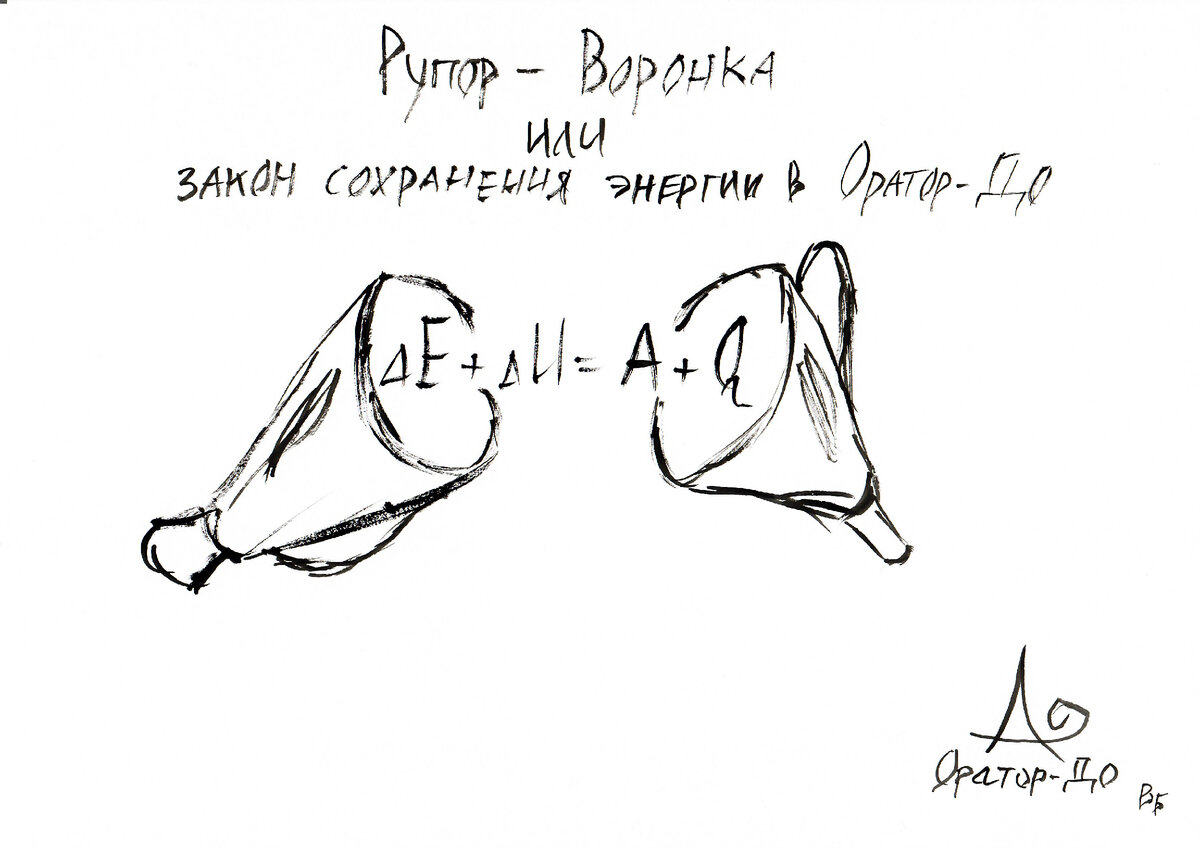 Рупор - Воронка
или
закон сохранения энергии в Оратор-До
ΔE + ΔU = A + Q
До
Оратор-До
ВБ